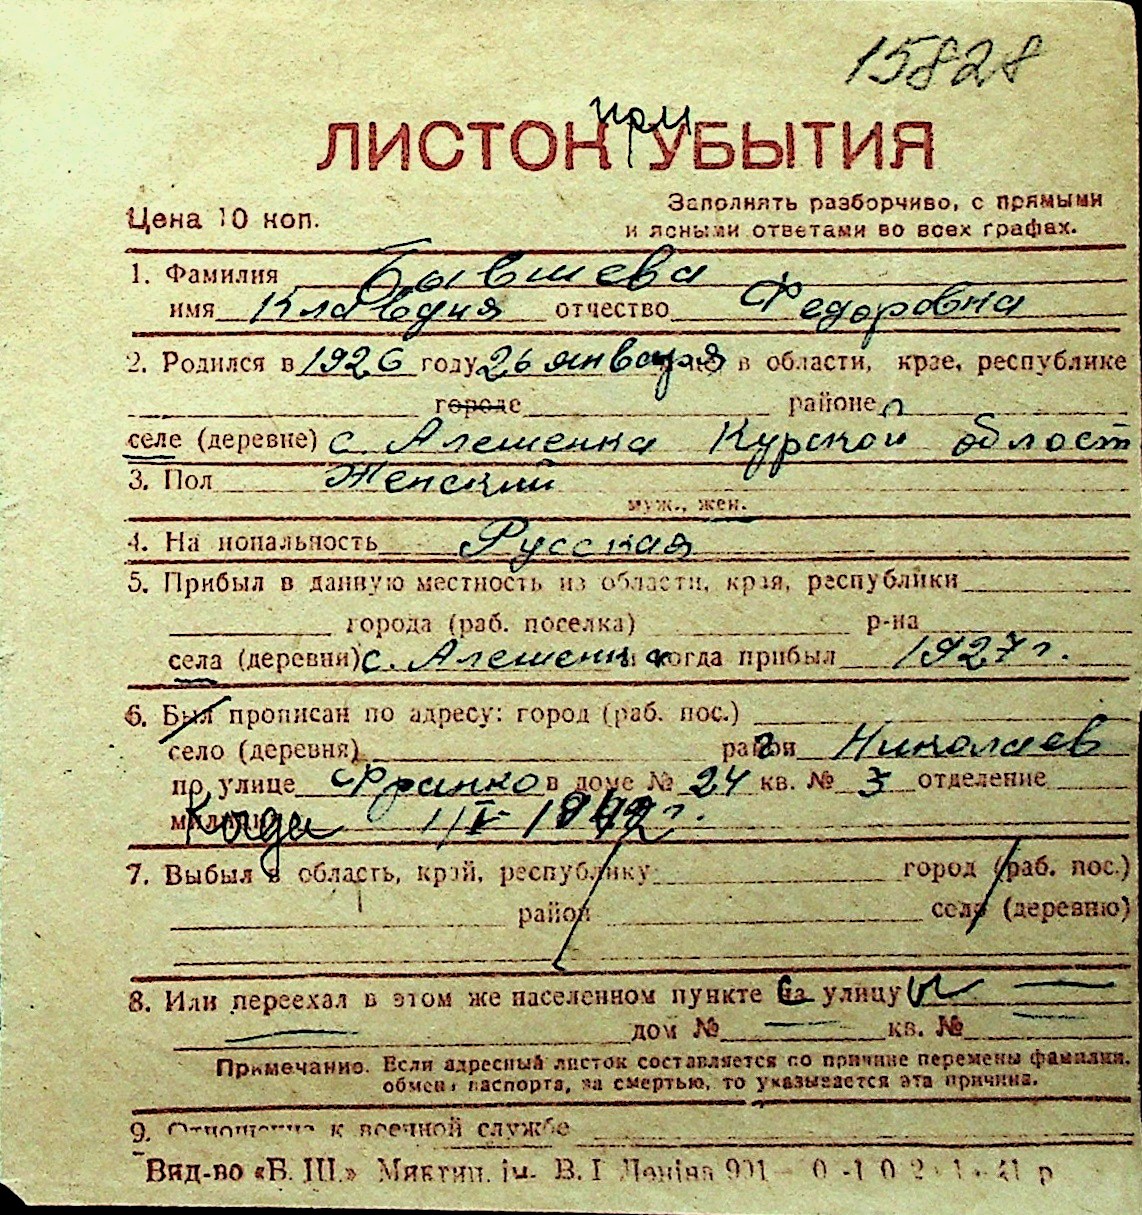 15828
при
ЛИСТОК УБЫТИЯ
Цена 10 коп.
Заполнять разборчиво, с прямыми
и ясными ответами во всех графах.
1. Фамилия Бывшева
имя Клавдия отчество Федоровна
2. Родился в 1926 году 26 января в области, крае, республике
городе районе
селе (деревне) с. Алешенка Курской област
3. Пол Женский
муж., жен.
4. На иональность Русская
5. Прибыл в данную местность из области, края, республики
города (раб. поселка) р-на
села (деревни) с. Алешенка когда прибыл 1927 г.
6. Был прописан по адресу: город (раб. пос.)
село (деревня) район Николаев
по улице Франко в доме № 24 кв. № 3 отделение
Когда 1/I- 1942 г.
7. Выбыл в область, край, республику город (раб. пос.)
район село (деревню)
8. Или переехал в этом же населенном пункте улицу
дом № кв. №
Примечание. Если адресный листок составляется по причине перемены фамилии,
обмена паспорта, за смертью, то указывается эта причина.
9. Отношение к военной службе
Вид-во «Б. Ш.» Миктип. ім. В. І Леніна